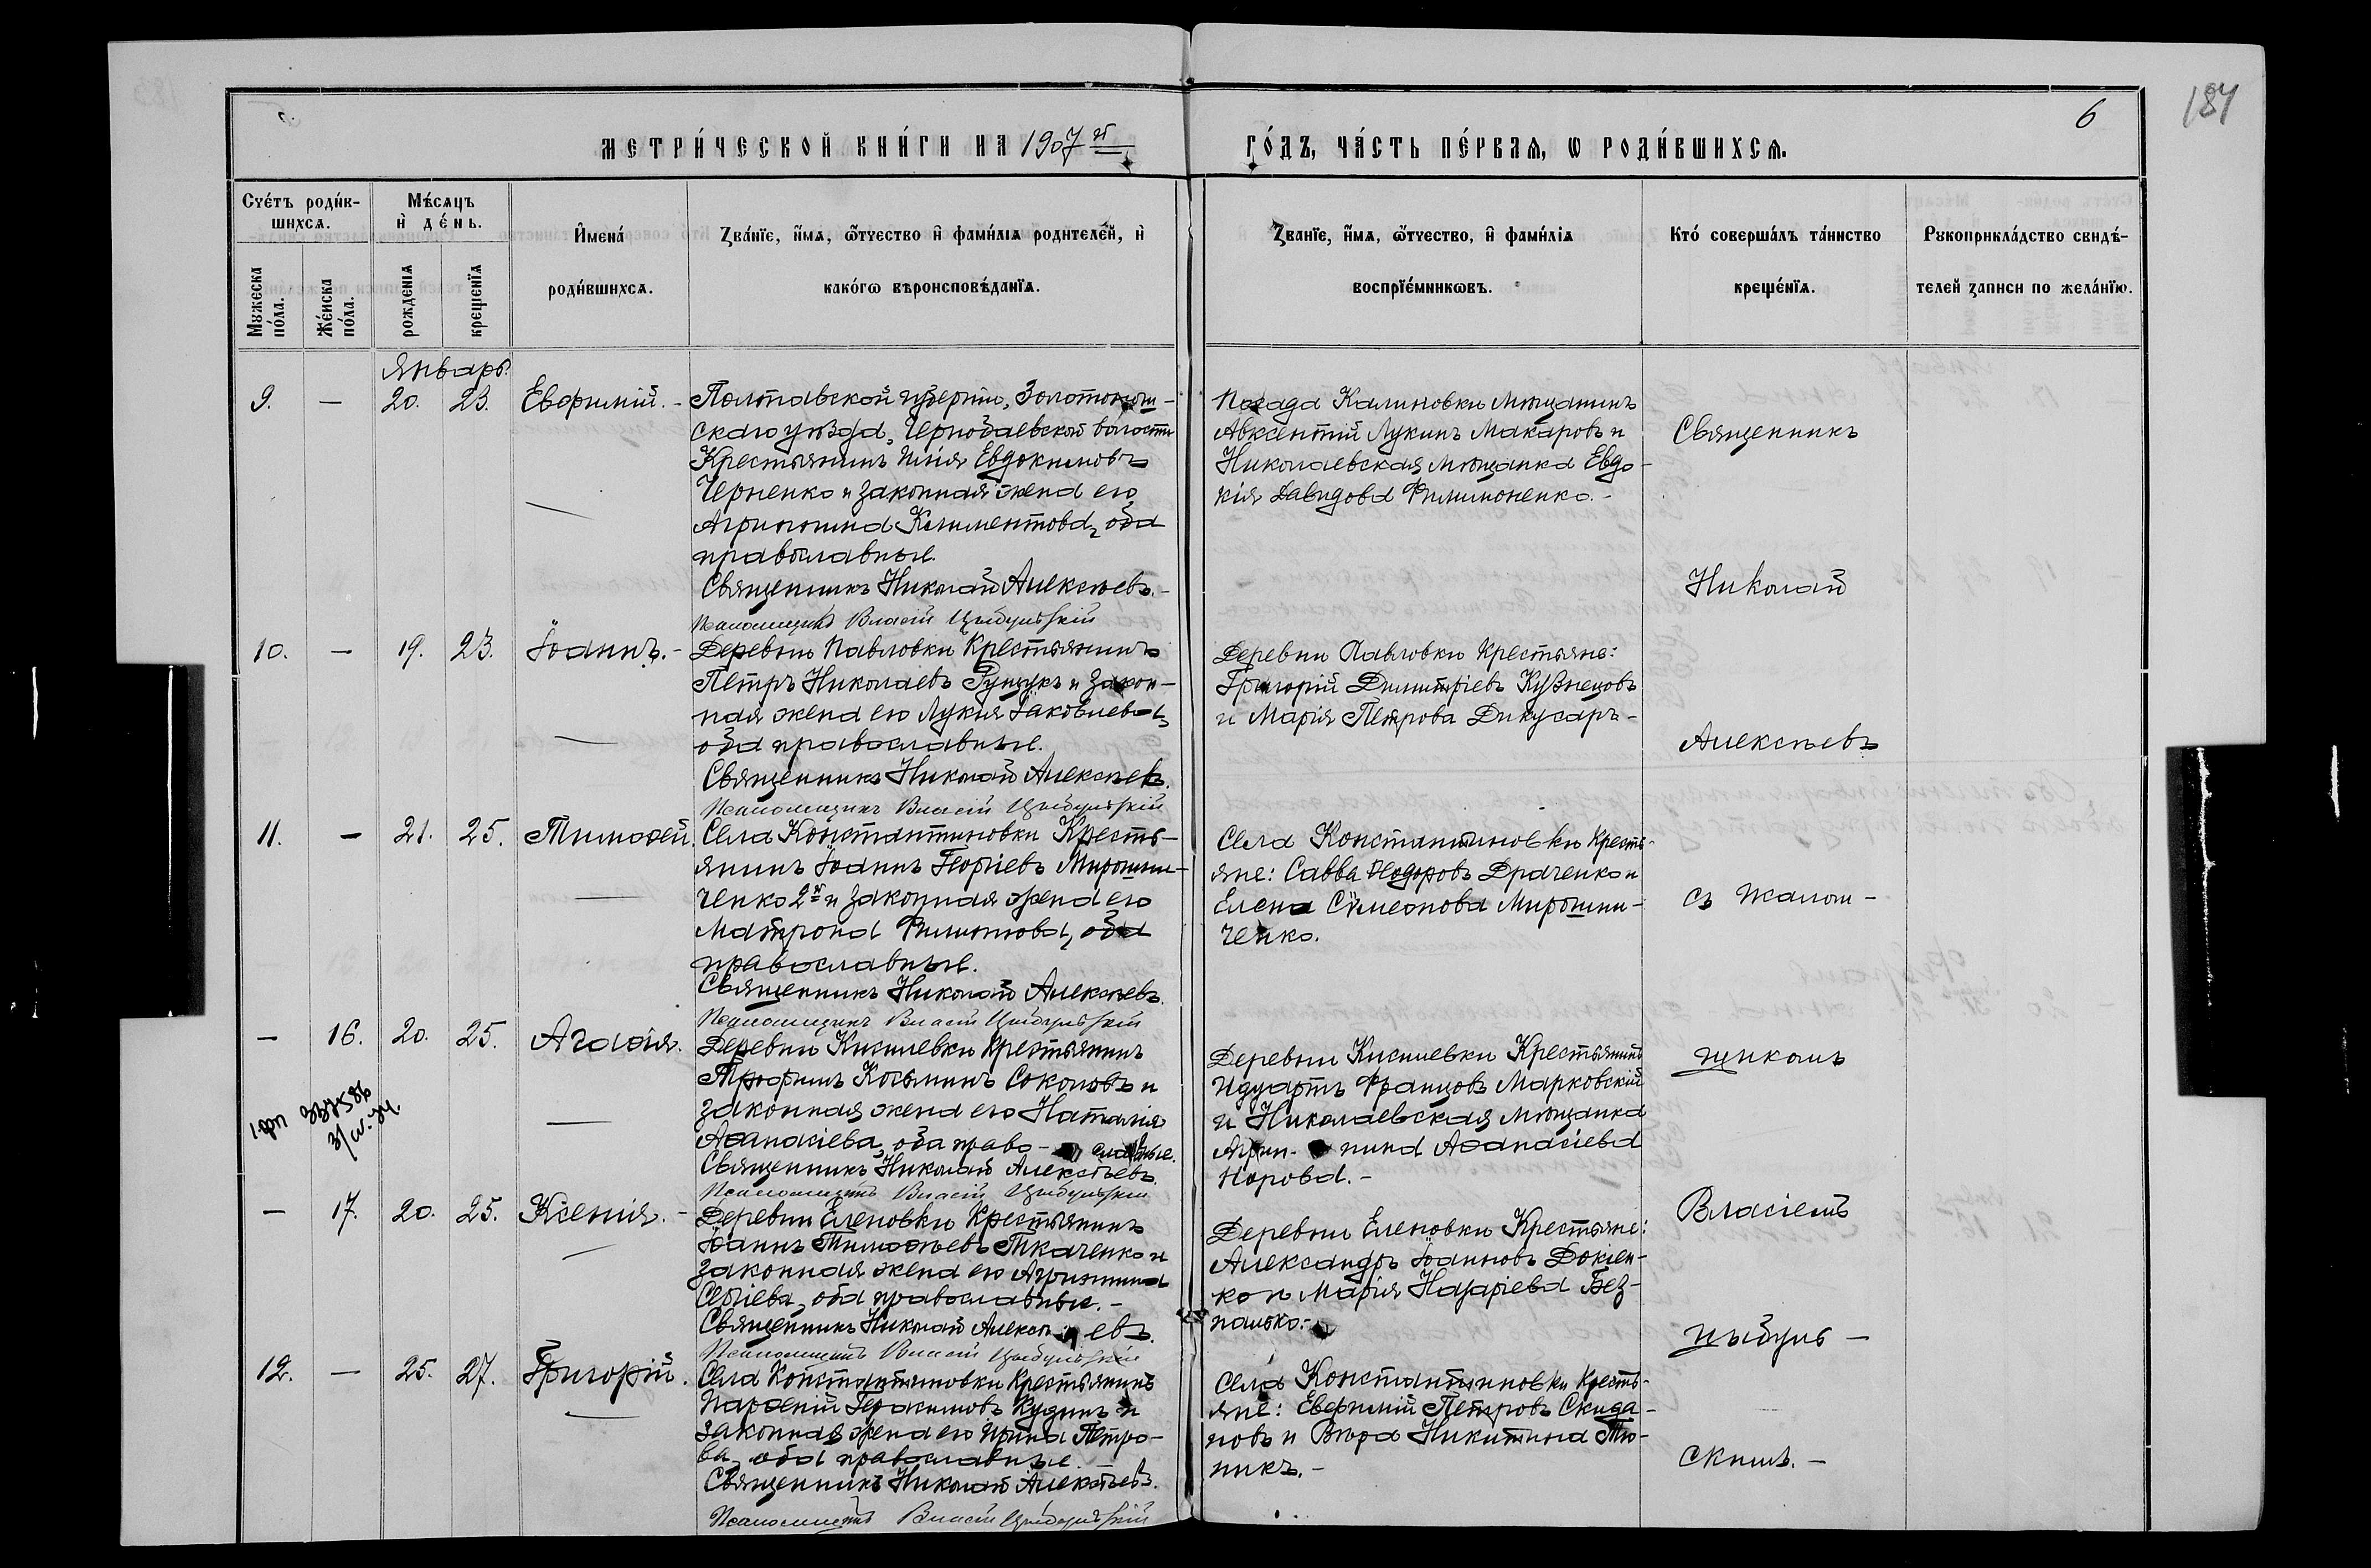 6
187
МЕТРИ́ЧЕСКОЙ КНИ́ГИ НА 1907й
ГО́ДЪ, ЧА́СТЬ ПЕ́РВАѦ, Ѡ РОДИ́ВШИХСѦ.
Сче́тъ роди́в-
шихсѧ.
Мѣ́сѧцъ
и҆ де́нь.
Мꙋжеска по́ла.
Же́нска по́ла.
рожденїѧ
крещенїѧ
И҆мена́
роди́вшихсѧ.
Зва́нїе, и҆́мѧ, ѻ҆́тчество и҆ фамі́лїѧ родителе́й, и҆
како́гѡ вѣроисповѣ́данїѧ.
Зва́нїе, и҆́мѧ, ѻ҆́тчество, и҆ фамі́лїѧ
воспрїе́мникѡвъ.
Кто́ соверша́лъ та́инство
креще́нїѧ.
Рꙋкоприкла́дство свидѣ́-
телей записи по жела́нїю.
Январь.
9. — 20. 23. Евфимій. -
Полтавской губерніи, Золотонош-
скаго уѣзда, Чернобаевской волости
Крестьянинъ Илія Евдокимовъ
Черненко и законная жена его
Агрипина Климентова, оба
православные.
Священникъ Николай Алексѣевъ.
Псаломщикъ Власій Цыбульскій
Посада Калиновки мѣщанинъ
Авксентій Лукинъ Макаровъ и
Николаевская мѣщанка Евдо-
кія Давидова Филимоненко. -
Священникъ
Николай
Алексѣевъ
съ псалом-
щикомъ
Власіемъ
Цыбуль-
скимъ. -
10. — 19. 23. Іоаннъ. -
Деревни Павловки Крестьянинъ
Петръ Николаевъ Рущукъ и закон-
ная жена его Лукія Іаковлева,
оба православные.
Священникъ Николай Алексѣевъ.
Псаломщикъ Власій Цыбульскій
Деревни Павловки Крестьяне:
Григорій Димитріевъ Кузнецовъ
и Марія Петрова Дикусаръ -
11. — 21. 25. Тимоѳей.
Села Константиновки Кресть-
янинъ Іоаннъ Георгіевъ Мирошни-
ченко 2й и законная жена его
Матрона Филипова, оба
православные.
Священникъ Николай Алексѣевъ.
Псаломщикъ Власій Цыбульскій
Села Константиновки Кресть-
яне: Савва Ѳедоровъ Драченко и
Елена Сѵмеонова Мирошни-
ченко.
— 16. 20. 25. Агаѳія.
Деревни Киселевки Крестьянинъ
Трофимъ Косьминъ Соколовъ и
законная жена его Наталія
Аѳанасіева, оба право- славные.
Священникъ Николай Алексѣевъ.
Псаломщикъ Власій Цыбульскій
Деревни Киселевки Крестьянинъ
Идуартъ Францовъ Марковскій
и Николаевская мѣщанка
Агрип- пина Аѳанасіева
Норова. -
— 17. 20. 25. Ксенія. -
Деревни Еленовки Крестьянинъ
Іоаннъ Тимоѳѣевъ Ткаченко и
законная жена его Агрипина
Сергіева, оба православные. -
Священникъ Николай Алексѣ евъ.
Псаломщикъ Власій Цыбульскій
Деревни Еленовки Крестьяне:
Александръ Іоанновъ Докіен-
ко и Марія Назаріева Без-
палько. -
12. — 25. 27. Григорій.
Села Константиновки Крестьянинъ
Парѳеній Герасимовъ Кудинъ и
законная жена его Ирина Петро-
ва, оба православные.
Священникъ Николай Алексѣевъ.
Псаломщикъ Власій Цыбульскій
Села Константиновки Кресть-
яне: Евфимій Петровъ Скида-
новъ и Вѣра Никитина Тю-
никъ. -